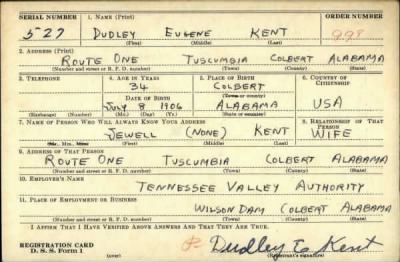 SERIAL NUMBER 1. NAME (Print) ORDER NUMBER
527 DUDLEY EUGENE KENT 998
(First) (Middle) (Last)
2. ADDRESS (Print)
ROUTE ONE TUSCUMBIA COLBERT ALABAMA
(Number and street or R. F. D. number) (Town) (County) (State)
3. TELEPHONE 4. AGE IN YEARS 5. PLACE OF BIRTH 6. COUNTRY OF CITIZENSHIP
34 COLBERT
DATE OF BIRTH (Town or county)
JULY 8 1906 ALABAMA USA
(Exchange) (Number) (Mo.) (Day) (Yr.) (State or country)
7. NAME OF PERSON WHO WILL ALWAYS KNOW YOUR ADDRESS 8. RELATIONSHIP OF THAT PERSON
JEWELL (NONE) KENT WIFE
(Mr., Mrs., Miss) (First) (Middle) (Last)
9. ADDRESS OF THAT PERSON
ROUTE ONE TUSCUMBIA COLBERT ALABAMA
(Number and street or R. F. D. number) (Town) (County) (State)
10. EMPLOYER'S NAME
TENNESSEE VALLEY AUTHORITY
11. PLACE OF EMPLOYMENT OR BUSINESS
WILSON DAM COLBERT ALABAMA
(Number and street or R. F. D. number) (Town) (County) (State)
I AFFIRM THAT I HAVE VERIFIED ABOVE ANSWERS AND THAT THEY ARE TRUE.
REGISTRATION CARD
D. S. S. Form 1 (over) Dudley E Kent
(Registrant's signature)